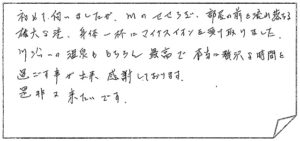 初めて伺いましたが、川のせせらぎ、部屋の前を流れ落ちる
雄大な滝、身体一杯にマイナスイオンを受け取りました。
川沿いの温泉ももちろん最高で本当に贅沢な時間を
過ごす事が出来 感謝しております。
是非又来たいです。